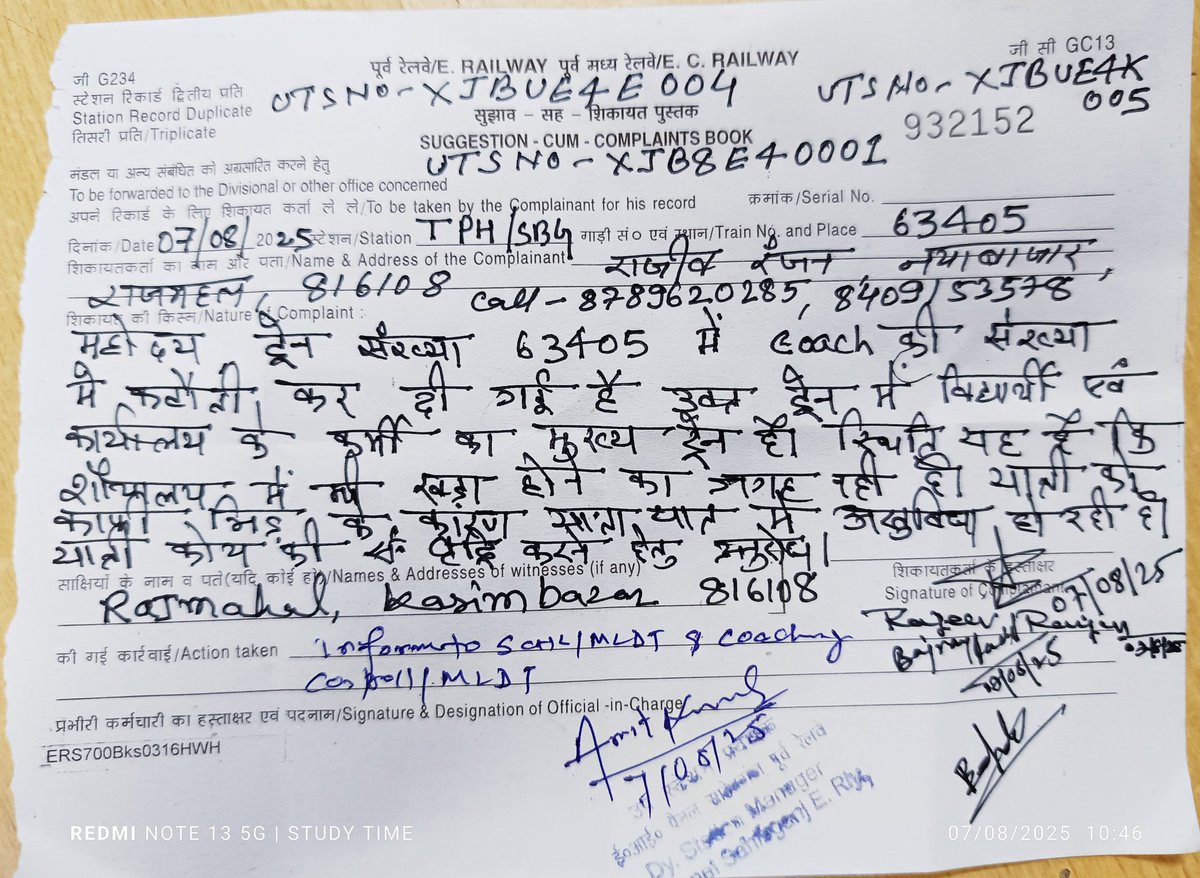 जी G234
पूर्व रेलवे/E. RAILWAY पूर्व मध्य रेलवे/E. C. RAILWAY
जी सी GC13
स्टेशन रिकार्ड द्वितीय प्रति
Station Record Duplicate
तिसरी प्रति/Triplicate
UTS No - XJBUE4E004
UTS No - XJBUE4K005
सुझाव - सह - शिकायत पुस्तक
932152
SUGGESTION - CUM - COMPLAINTS BOOK
UTS NO - XJB8E40001
मंडल या अन्य संबंधित को अग्रसारित करने हेतु
To be forwarded to the Divisional or other office concerned
अपने रिकार्ड के लिए शिकायत कर्ता ले ले/To be taken by the Complainant for his record क्रमांक/Serial No.
दिनांक/Date 07/08/2025 स्टेशन/Station TPH/SBG गाड़ी सं० एवं स्थान/Train No. and Place 63405
शिकायतकर्ता का नाम और पता/Name & Address of the Complainant राजीव रंजन नयाबाजार,
राजमहल, 816108 Call - 8789620285, 8409153578
शिकायत की किस्म/Nature of Complaint :
महोदय ट्रेन संख्या 63405 में coach की संख्या
मे कटौती कर दी गई है उक्त ट्रेन में विद्यार्थी एवं
कार्यालय के कर्मी का मुख्य ट्रेन है। स्थिति यह है कि
में भी खड़ा होने का जगह नही है। यात्री को
काफी भिड़ के कारण में असुविधा हो रही है।
यात्री की सं० वृद्धि करने हेतु अनुरोध।
साक्षियों के नाम व पते(यदि कोई हो)/Names & Addresses of witnesses (if any)
शिकायतकर्ता के हस्ताक्षर
Signature of Complainant
07/08/25
Rajmahal, Kasim bazar 816108
Rajeev Ranjan
की गई कार्रवाई/Action taken
प्रभीरी कर्मचारी का हस्ताक्षर एवं पदनाम/Signature & Designation of Official -in-Charge
ERS700Bks0316HWH
Amit Kumar
7/08/25
Dy. Station Manager
REDMI NOTE 13 5G | STUDY TIME
07/08/2025 10:46